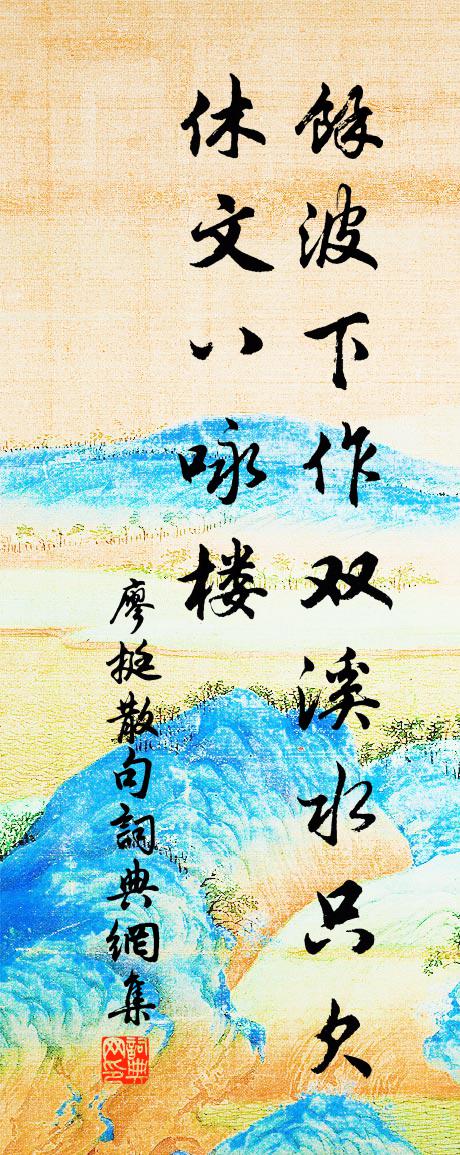 餘波下作双溪水只欠
休文八咏楼
廖挺散句詞典網集
詞典网印